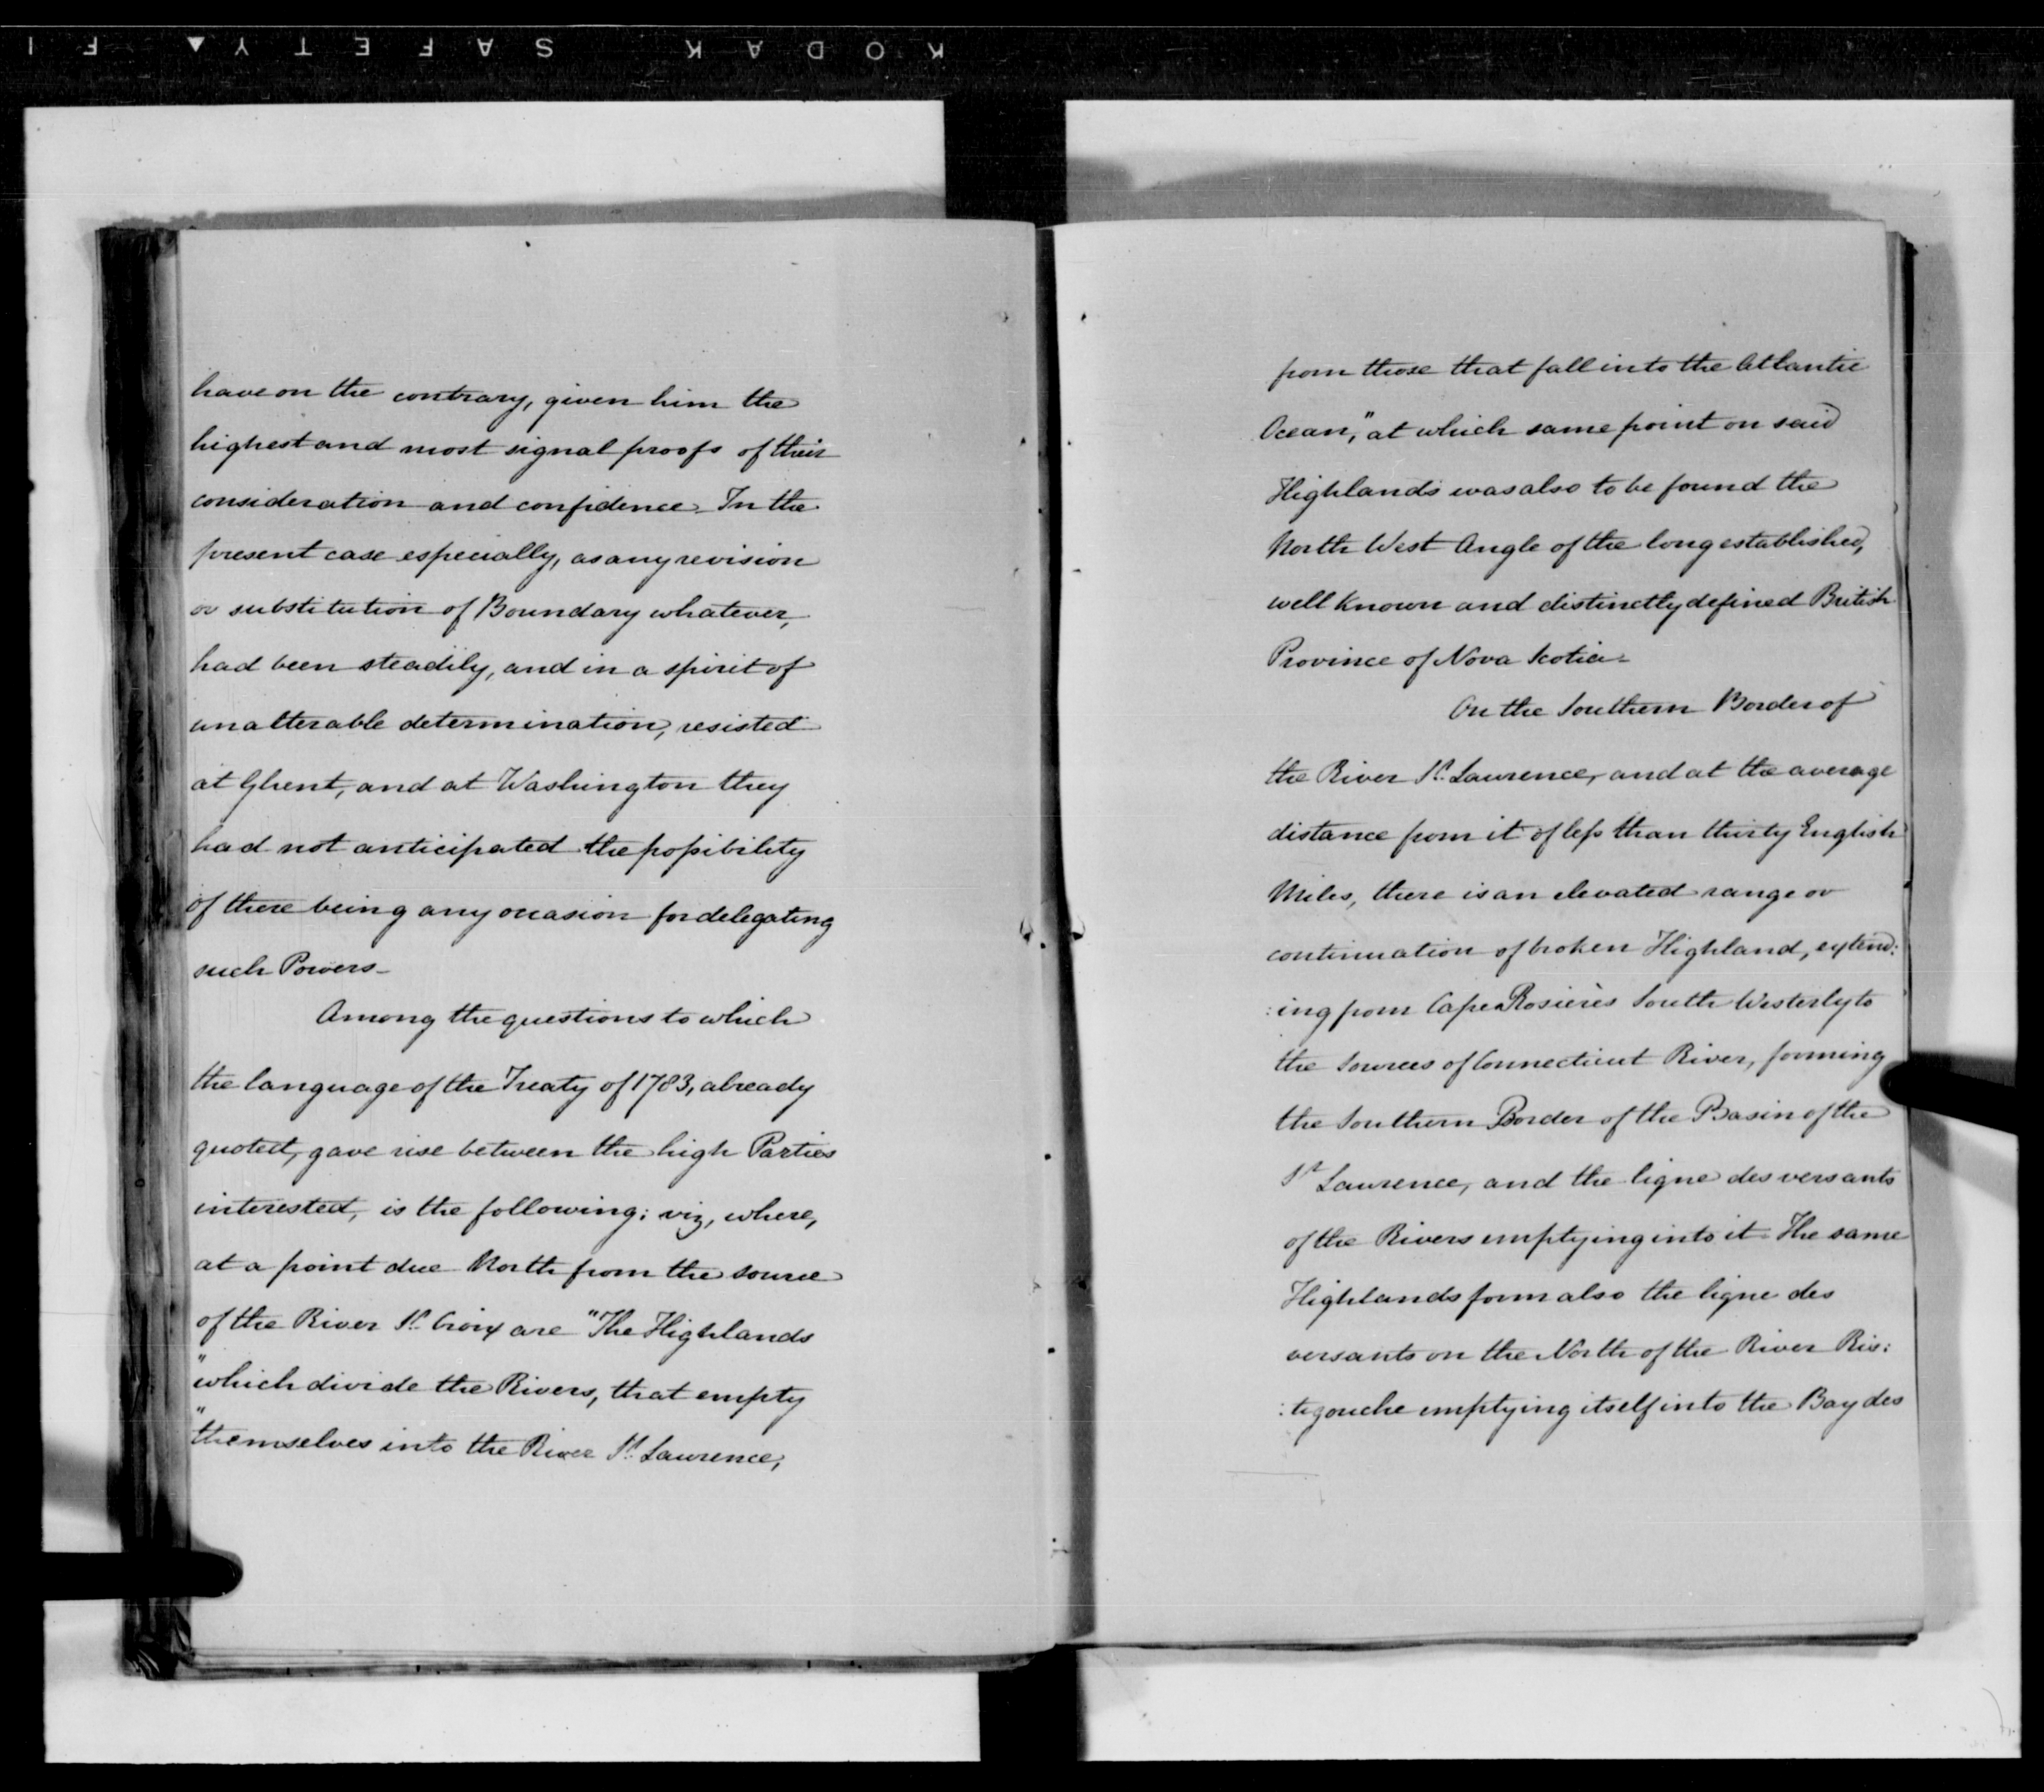 KODAK SAFETY ▲ FI
have on the contrary, given him the
highest and most signal proofs of their
consideration and confidence. In the
present case especially, as any revision
or substitution of Boundary whatever,
had been steadily, and in a spirit of
unalterable determination, resisted
at Ghent, and at Washington they
had not anticipated the possibility
of there being any occasion for delegating
such Powers_
Among the questions to which
the language of the Treaty of 1783, already
quoted, gave rise between the high Parties
interested, is the following; viz, where,
at a point due North from the source
of the River St. Croix are "The Highlands
"which divide the Rivers, that empty
"themselves into the River St. Lawrence,
from those that fall into the Atlantic
Ocean," at which same point on said
Highlands was also to be found the
North West Angle of the long established,
well known and distinctly defined British
Province of Nova Scotia_
On the Southern Border of
the River St. Lawrence, and at the average
distance from it of less than thirty English
Miles, there is an elevated range or
continuation of broken Highland, extend:
:ing from Cape Rosières South Westerly to
the Sources of Connecticut River, forming
the Southern Border of the Basin of the
St Lawrence, and the ligne des versants
of the Rivers emptying into it. The same
Highlands form also the ligne des
versants on the North of the River Ris:
:tigouche emptying itself into the Bay des